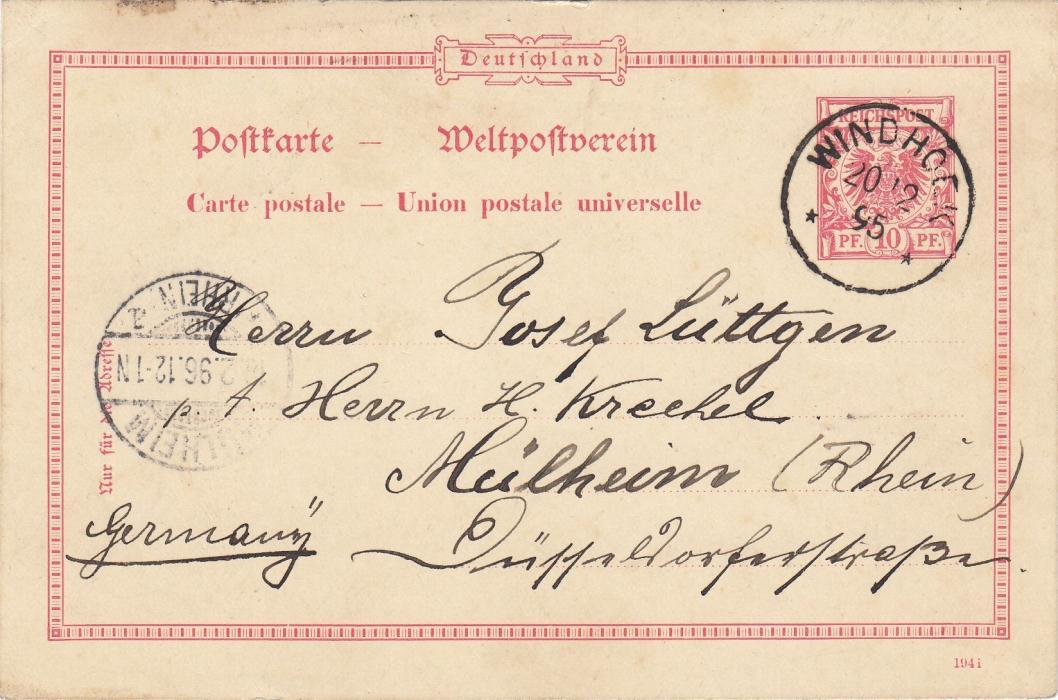 Deutschland
Postkarte — Weltpostverein
Carte postale — Union postale universelle
REICHSPOST
PF. 10 PF.
WINDHOEK
20 12
95
RHEIN
2.96.12-1N
MÜLHEIM
Nur für die Adresse
Herrn Josef Lüttgen
p. A. Herrn H. Krechel
Mülheim (Rhein)
Germany
Düsseldorferstraße.
194i